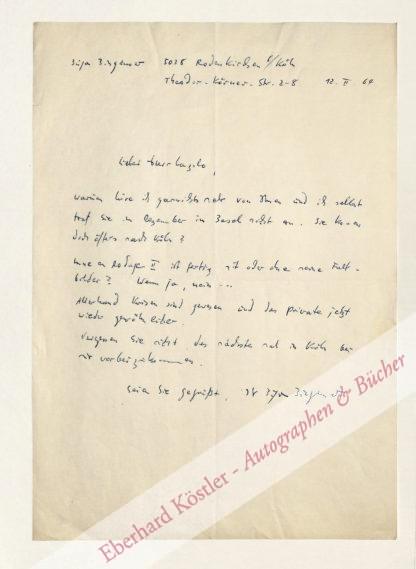 5038 Rodenkirchen b/Köln
Theodor-Körner-Str. 2-8 12. II 64
Lieber Herr
warum höre ich garnichts mehr von Ihnen und ich selbst
traf Sie im Dezember in Basel nicht an. Sie kamen
doch öfters nach Köln?
II ist fertig mit oder ohne meine Falt-
bilder? Wenn ja, wenn ...
Allerhand Krisen sind gewesen und das private jetzt
wieder
Vergessen Sie nicht das nächste mal in Köln bei
mir vorbeizukommen.
Seien Sie gegrüsst, Ihr
Eberhard Köstler - Autographen & Bücher